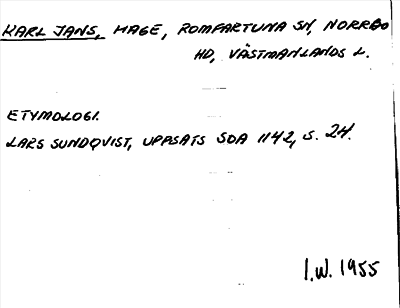 KARL JANS, HAGE, ROMFARTUNA SN, NORRBO
HD, VÄSTMANLANDS L.
ETYMOLOGI.
LARS SUNDQVIST, UPPSATS SOA 1142, S. 24.
I.W. 1955